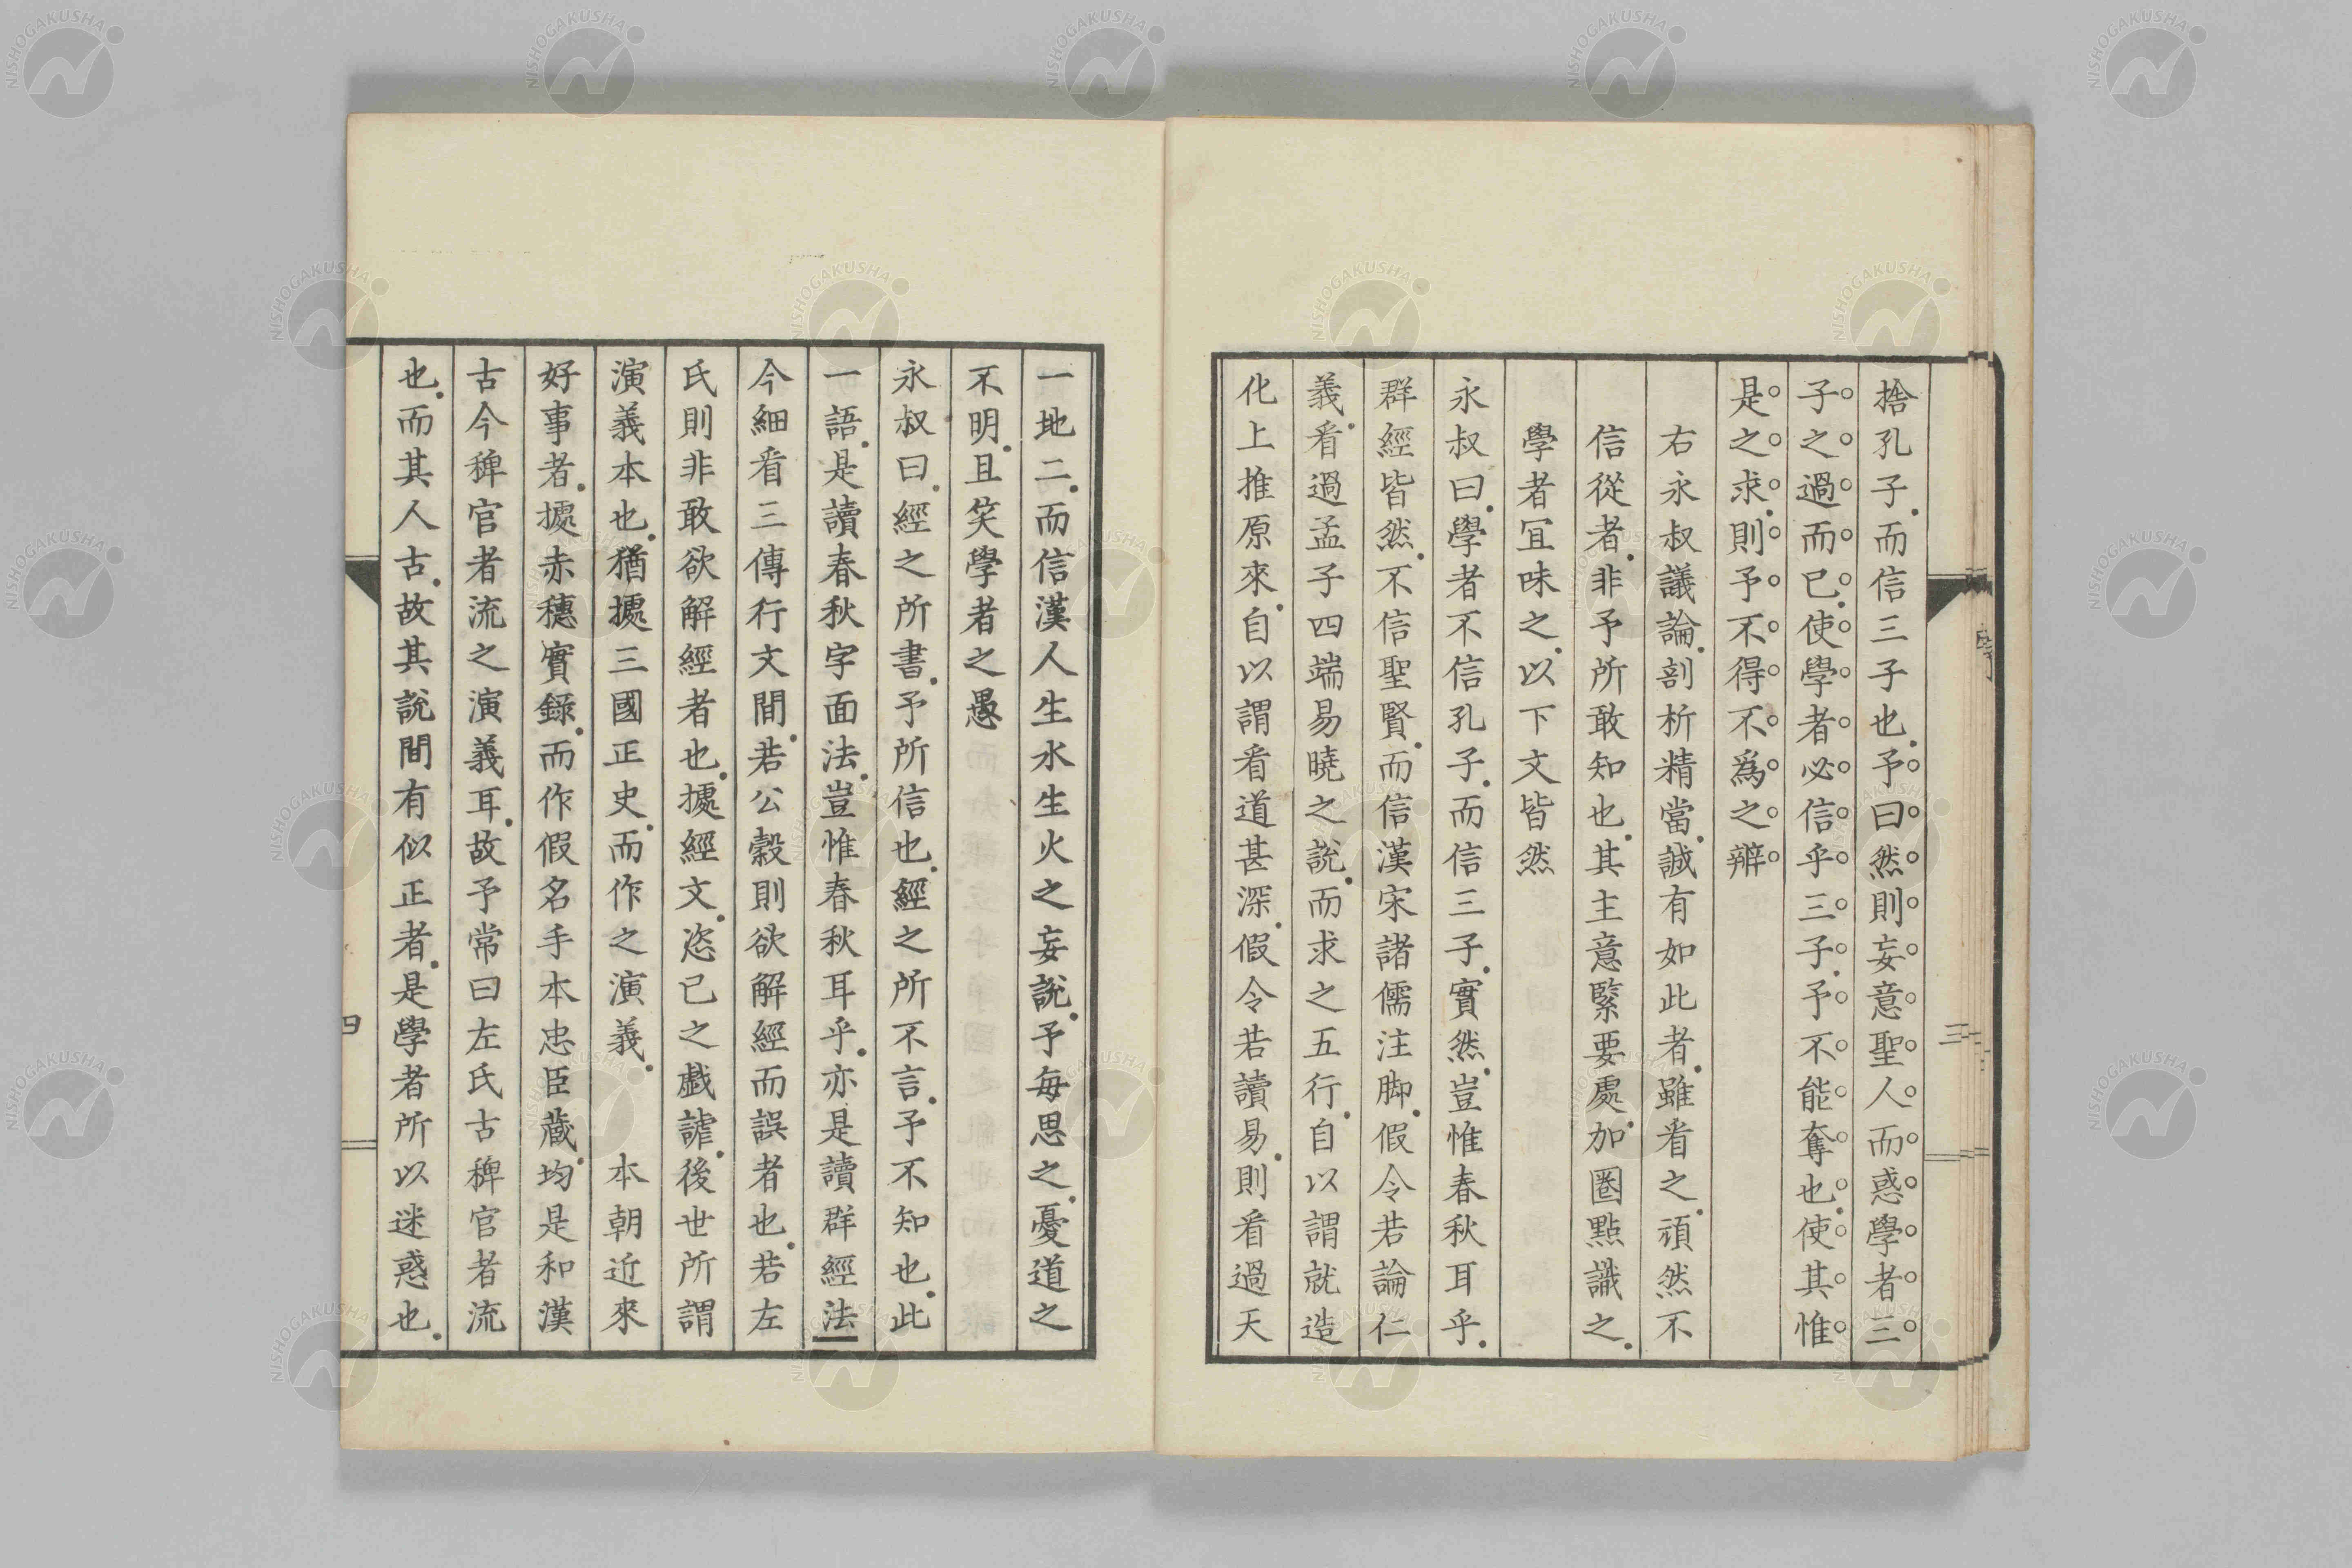 捨孔子.而信三子也.予曰然則妄意聖人而惑學者三
子之過而已.使學者必信乎三子.予不能奪也.使其惟
是之求.則予不得不爲之辨
右永叔議論.剖析精當.誠有如此者.雖看之.頑然不
信從者.非予所敢知也.其主意緊要處.加圏點識之.
學者宜味之.以下文皆然
永叔曰.學者不信孔子.而信三子.實然.豈惟春秋耳乎.
群經皆然.不信聖賢.而信漢宋諸儒注脚.假令若論仁
義.看過孟子四端易曉之說.而求之五行.自以謂就造
化上推原來.自以謂看道甚深.假令若讀易.則看過天
三
一地二.而信漢人生水生火之妄說.予每思之.憂道之
不明.且笑學者之愚
永叔曰.經之所書.予所信也.經之所不言.予不知也.此
一語.是讀春秋字面法.豈惟春秋耳乎.亦是讀群經法
今細看三傳行文間.若公穀則欲解經而誤者也.若左
氏則非敢欲解經者也.據經文.恣已之戯謔.後世所謂
演義本也.猶據三國正史.而作之演義.　本朝近來
好事者.據赤穗實錄.而作假名手本忠臣藏.均是和漢
古今稗官者流之演義耳.故予常曰左氏古稗官者流
也.而其人古.故其說間有似正者.是學者所以迷惑也.
四
NISHOGAKUSHA